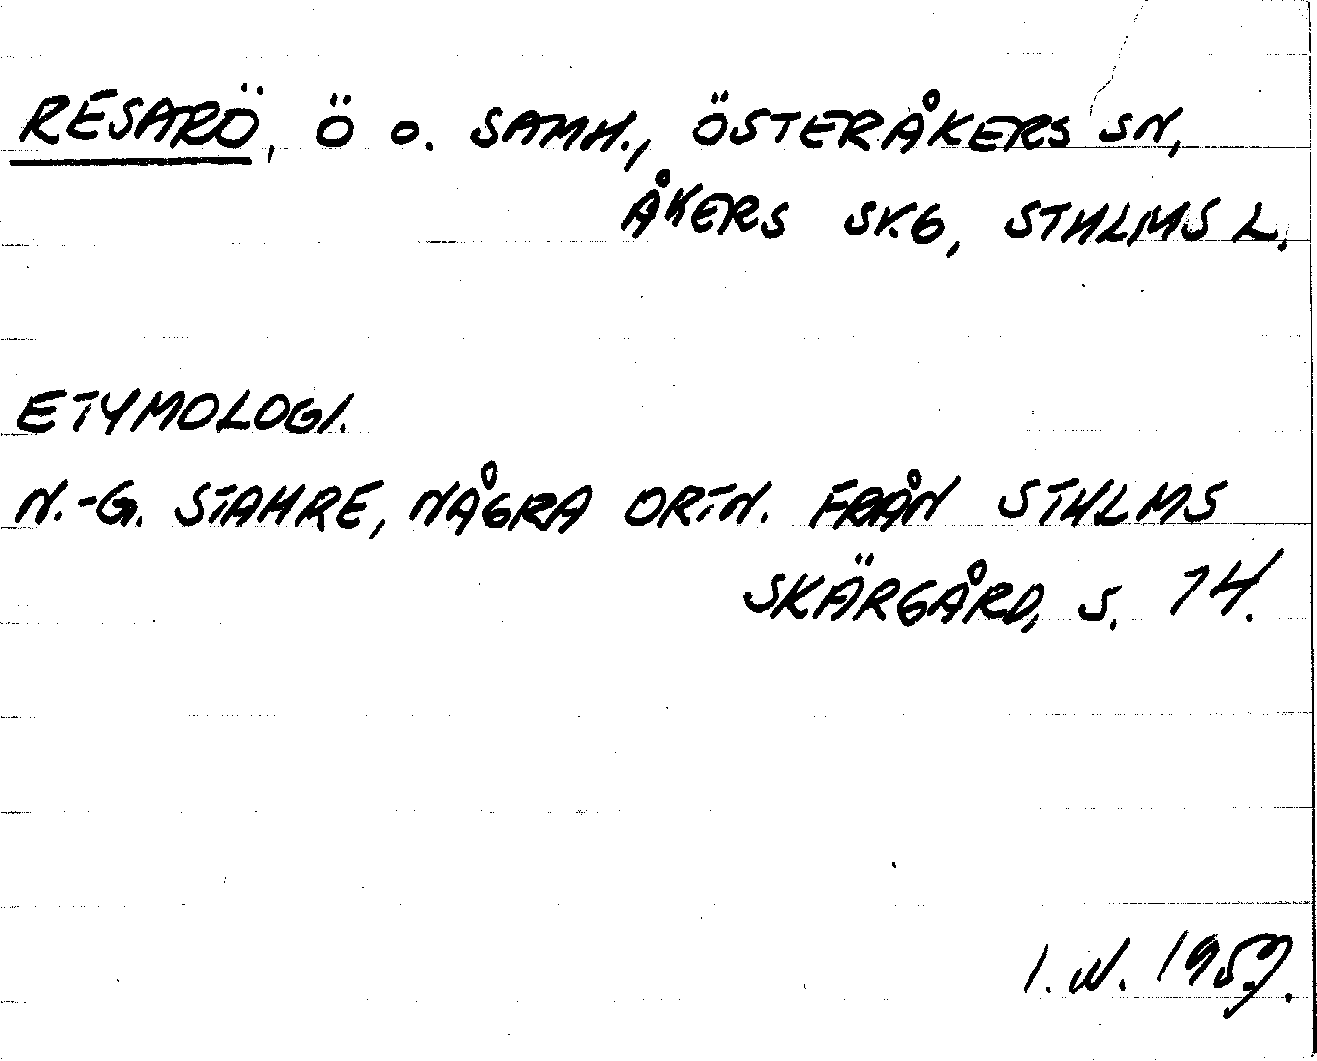 RESARÖ, Ö O. SAMH., ÖSTERÅKERS SN,
ÅKERS SKG, STHLMS L.
ETYMOLOGI.
N.-G. STAHRE, NÅGRA ORTN. FRÅN STHLMS
SKÄRGÅRD, S. 14.
I. W. 1959.